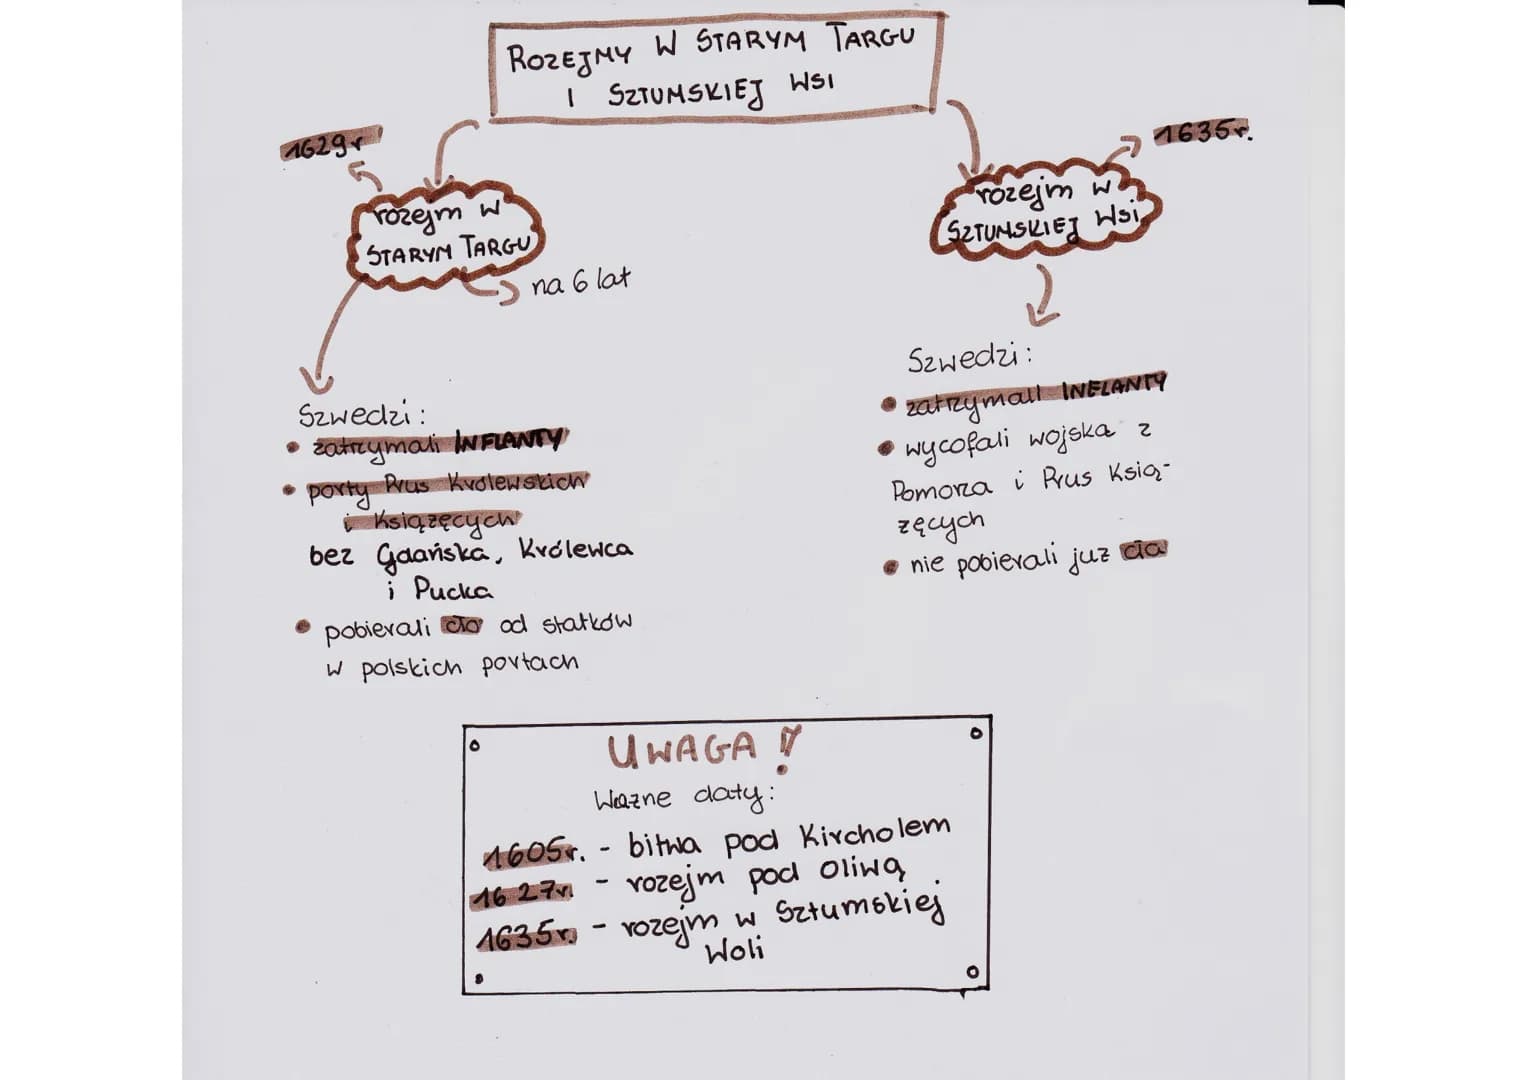 ROZEJMY W STARYM TARGU
I SZTUMSKIEJ WSI
1629r
rozejm w
STARYM TARGU
na 6 lat
Szwedzi:
• zatrzymali INFLANTY
• porty Prus Królewskich
i Książęcych
bez Gdańska, Królewca
i Pucka
• pobierali cło od statków
w polskich portach
1635r.
rozejm w
SZTUMSKIEJ Wsi
Szwedzi:
• zatrzymali INFLANTY
• wycofali wojska z
Pomorza i Prus Ksią-
zęcych
• nie pobierali juz cła
UWAGA !
Wazne daty:
1605r. - bitwa pod Kircholem
1627r. - rozejm pod Oliwą
1635r. - rozejm w Sztumskiej
Woli